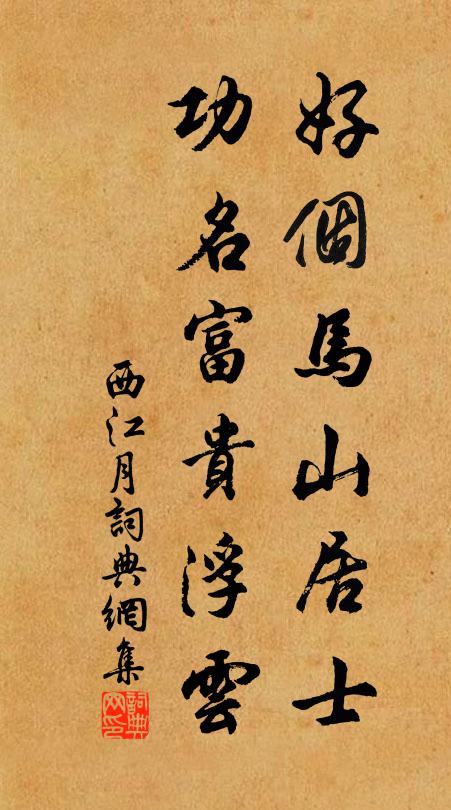 好個馬山居士
功名富貴浮雲
西江月詞典網集
詞典
网印